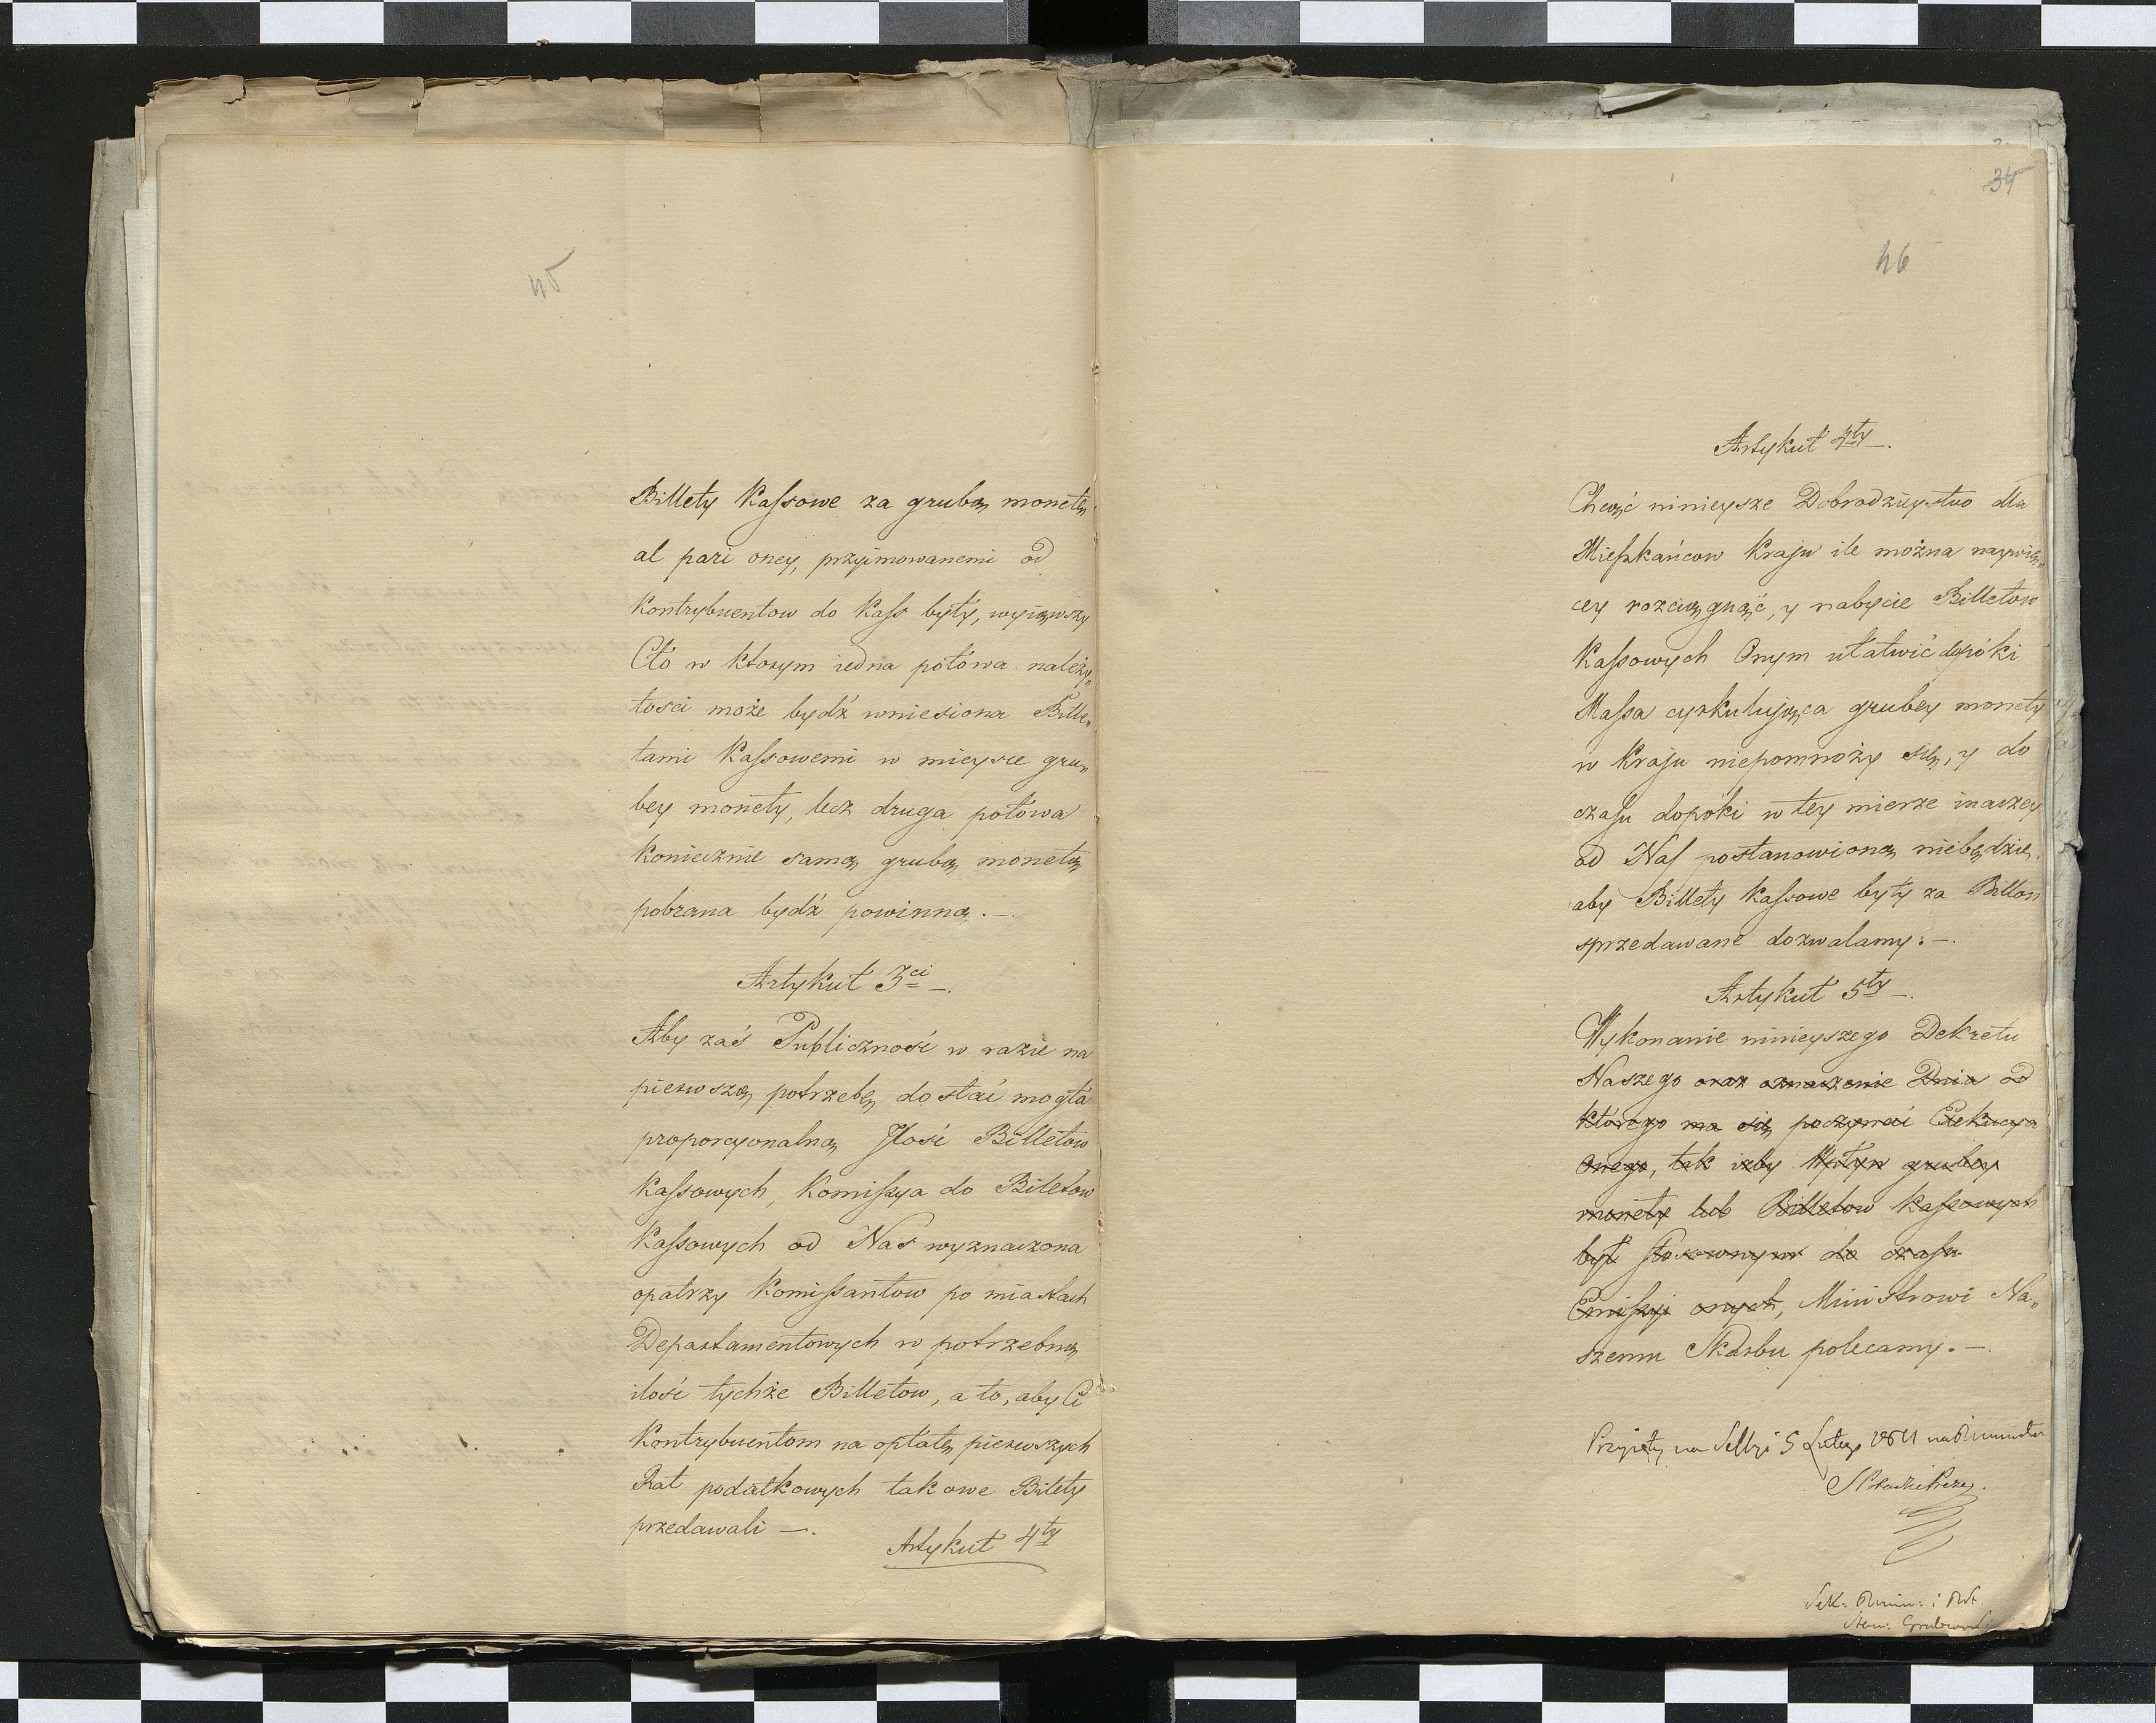 45
Billety Kassowe za grubą monetę
al pari oney, przyimowanemi od
Kontrybuentow do Kass były, wyiąwszy
Cło w ktorym iedna połowa należy„
tości może bydź wniesiona Bille„
tami Kassowemi w mieysce gru„
bey monety, lecz druga połowa
koniecznie samą grubą monetą
pobrana bydź powinna.—.
Artykuł 3ci—.
Aby zaś Publiczność w razie na
pierwszą potrzebę dostać mogła
proporcyonalną Jlość Billetow
Kassowych, Komissya do Biletow
Kassowych od Nas wyznaczona
opatrzy Komissantow po miastach
Departamentowych w potrzebną
ilość tychże Billetow, a to, aby Ci
Kontrybuentom na opłatę pierwszych
Rat podatkowych takowe Bilety
przedawali —.
Artykuł 4ty
34
46
Artykuł 4ty—.
Chcąć ninieysze Dobrodzieystwo dla
Mieszkańcow Kraju ile można naywię„
cey rozciągnąć, y nabycie Billetow
Kassowych Onym ułatwić dopóki
Massa cyrkulująca grubey monety
w Kraju niepomnoży się, y do
czasu dopóki w tey mierze inaczey
od Nas postanowioną niebędzie,
aby Billety Kassowe były za Billon
sprzedawane dozwalamy.—.
Artykuł 5ty—.
Wykonanie ninieyszego Dekretu
Naszego oraz oznaczenie Dnia od
którego ma się poczynać Exekucya
Onego, tak iżby Wpływ grubey
monety lub Billetow Kassowych
był stosownym do czasu
Emissyi onych, Ministrowi Na„
szemu Skarbu polecamy.—.
Przyięty na Sessyi 5 Lutego 1811
Sek:
Stan: Grabowski